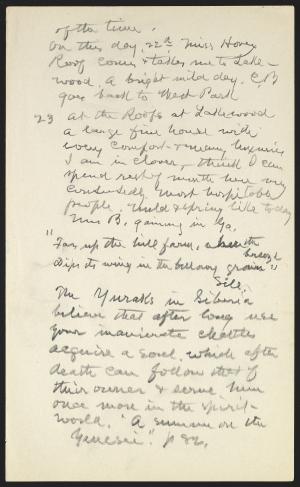 of the time.
On this day, 22d Miss Hovey
Roof comes & takes me to Lake-
wood. A bright mild day. C.B
goes back to West Park
23 At the Roofs at Lakewood
a large fine house with
every comfort & many luxuries
I am in clover, think I can
spend rest of month here very
contentedly. Most hospitable
people. Mild & spring like today
Mrs B. gaining in Ga.
"Far up the hill farm, where the
breeze
Dips its wing in the billowy grain"
Sill.
The Yuraks in Siberia
believe that after long use
your inanimate chattles
acquire a soul, which after
death can follow that of
their owner & serve him
once more in the spirit-
world. "A summer on the
Yenesei". p 82.